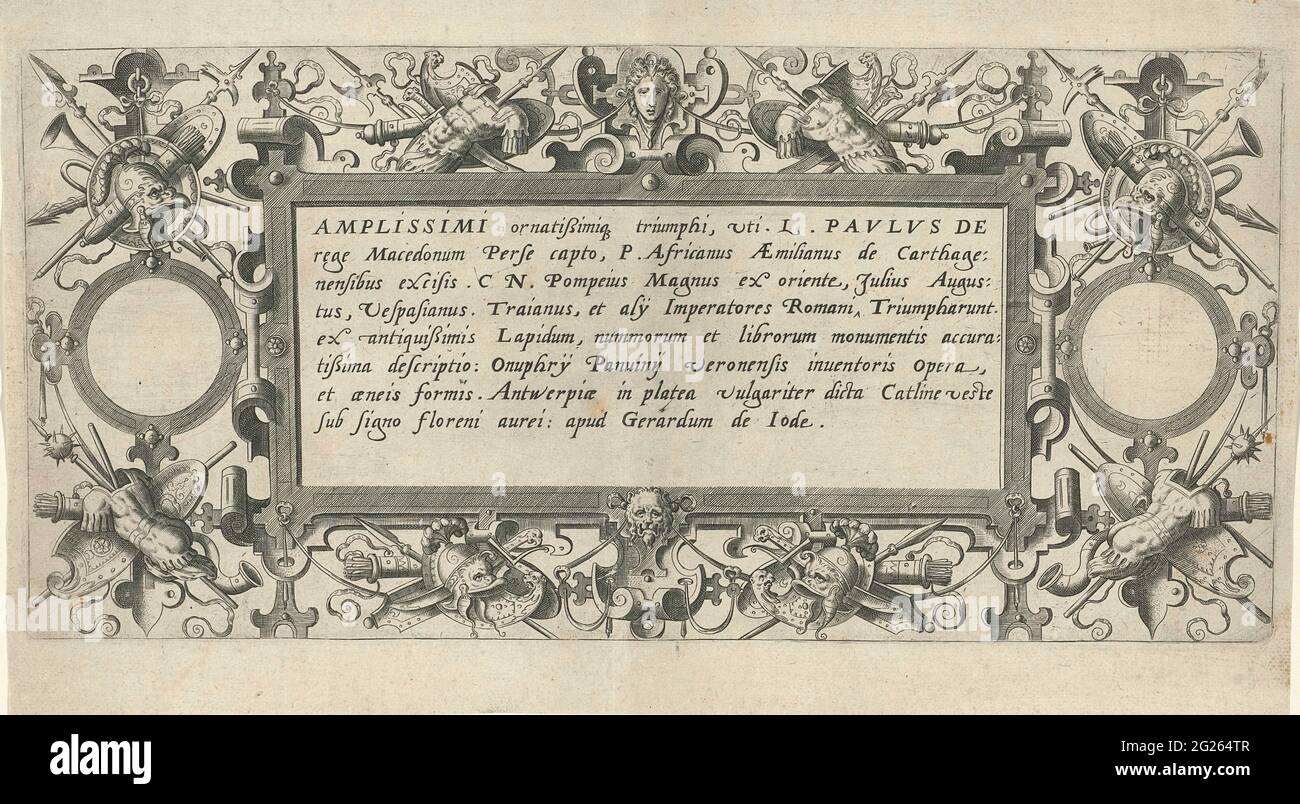 AMPLISSIMI ornatißimiq3 triumphi, vti . L . PAVLVS DE
rege Macedonum Perse capto, P. Africanus Æmilianus de Carthage:
nensibus excisis . C N. Pompeius Magnus ex oriente, Julius Augus:
tus, Vespasianus. Traianus, et alÿ Imperatores Romani, Triumpharunt.
ex antiquißimis Lapidum, nummorum et librorum monumentis accura:
tißima descriptio: Onuphrÿ Panuinÿ veronensis inuentoris Opera,
et æneis formis. Antwerpiæ in platea vulgariter dicta Catline veste
sub signo floreni aurei: apud Gerardum de Iode.
alamy
alamy
Image ID: 2G264TR
www.alamy.com